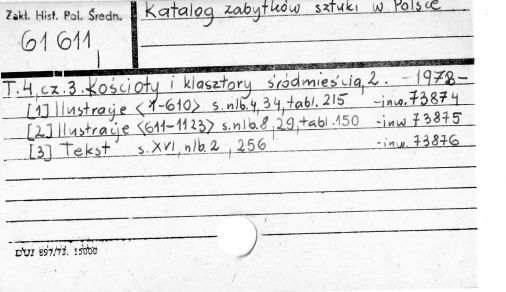 Zakł. Hist. Pol. Średn.
Katalog zabytków sztuki w Polsce
61 611
T.4, cz.3. Kościoły i klasztory śródmieścia, 2. -1978-
[1] Ilustracje <1-610> s.nlb.4, 34, tabl. 215 -inw. 73874
[2] Ilustracje <611-1123> s.nlb.8, 29, tabl. 150 -inw 73875
[3] Tekst s. XVI, nlb. 2, 256 -inw. 73876
DUI 897/73. 15000